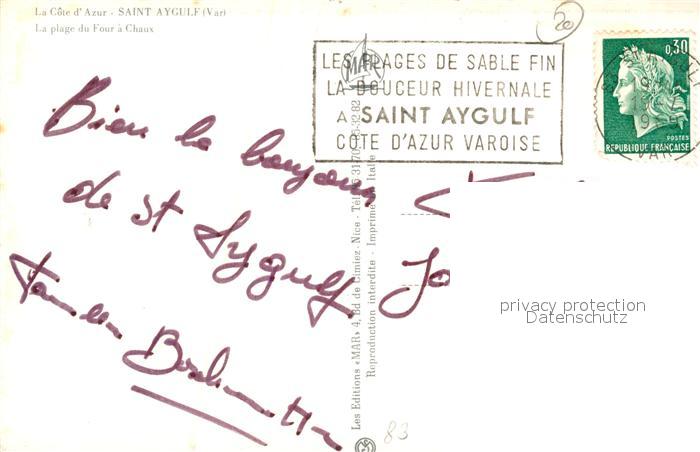 La Côte d'Azur - SAINT AYGULF (Var)
La plage du Four à Chaux
20
LES PLAGES DE SABLE FIN
LA DOUCEUR HIVERNALE
A SAINT AYGULF
COTE D'AZUR VAROISE
MAR
0,30
POSTES
REPUBLIQUE FRANÇAISE
VAR
Bien le bonjour
de St Aygulf
Les Editions «MAR» 4, Bd de Cimiez - Nice - Tél.
Reproduction interdite - Imprimé en Italie
privacy protection
Datenschutz
83